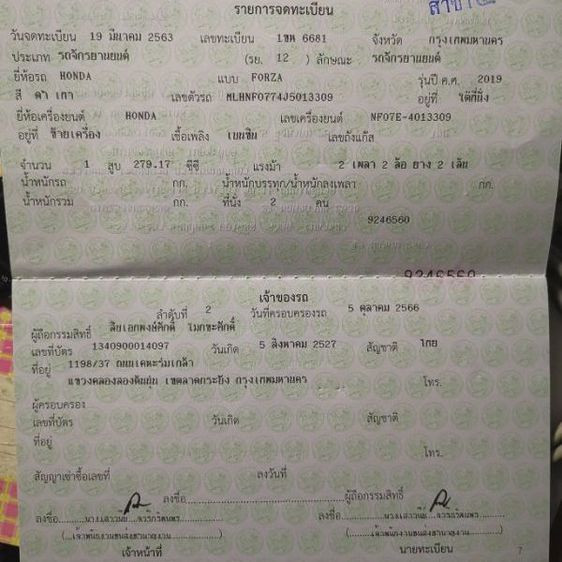 สาขา
รายการจดทะเบียน
วันจดทะเบียน 19 มีนาคม 2563 เลขทะเบียน 1ขฬ 6681 จังหวัด กรุงเทพมหานคร
ประเภท รถจักรยานยนต์ (รย. 12 ) ลักษณะ รถจักรยานยนต์
ยี่ห้อรถ HONDA แบบ FORZA รุ่นปี ค.ศ. 2019
สี ดำ เทา เลขตัวรถ MLHNF0774J5013309 อยู่ที่ ใต้ที่นั่ง
ยี่ห้อเครื่องยนต์ HONDA เลขเครื่องยนต์ NF07E-4013309
อยู่ที่ ซ้ายเครื่อง เชื้อเพลิง เบนซิน เลขถังแก๊ส
จำนวน 1 สูบ 279.17 ซีซี แรงม้า 2 เพลา 2 ล้อ ยาง 2 เส้น
น้ำหนักรถ กก. น้ำหนักบรรทุก/น้ำหนักลงเพลา กก.
น้ำหนักรวม กก. ที่นั่ง 2 คน
9246560
9246560
เจ้าของรถ
ลำดับที่ 2 วันที่ครอบครองรถ 5 ตุลาคม 2566
ผู้ถือกรรมสิทธิ์
เลขที่บัตร 1340900014097 วันเกิด 5 สิงหาคม 2527 สัญชาติ ไทย
ที่อยู่ 1198/37 ถนนเคหะร่มเกล้า
แขวงคลองสองต้นนุ่น เขตลาดกระบัง กรุงเทพมหานคร โทร.
ผู้ครอบครอง
เลขที่บัตร วันเกิด สัญชาติ
ที่อยู่
โทร.
สัญญาเช่าซื้อเลขที่ ลงวันที่
ลงชื่อ ผู้ถือกรรมสิทธิ์
ลงชื่อ นางเสาวนีย์ ลงชื่อ นางเสาวนีย์
(เจ้าพนักงานขนส่งชำนาญงาน) (เจ้าพนักงานขนส่งชำนาญงาน)
เจ้าหน้าที่ นายทะเบียน 7